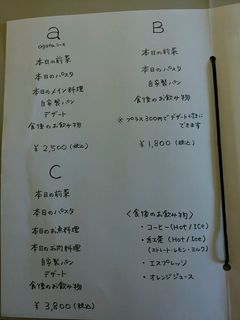 a
ogata コース
本日の前菜
本日のパスタ
本日のメイン料理
自家製パン
デザート
食後のお飲み物
¥2,500 (税込)
B
本日の前菜
本日のパスタ
自家製パン
食後のお飲み物
※プラス300円でデザート付きに
できます
¥1,800 (税込)
C
本日の前菜
本日のパスタ
本日のお魚料理
本日のお肉料理
自家製パン
デザート
食後のお飲み物
¥3,800 (税込)
<食後のお飲み物>
・コーヒー (Hot / Ice)
・紅茶 (Hot / Ice)
(ストレート・レモン・ミルク)
・エスプレッソ
・オレンジジュース